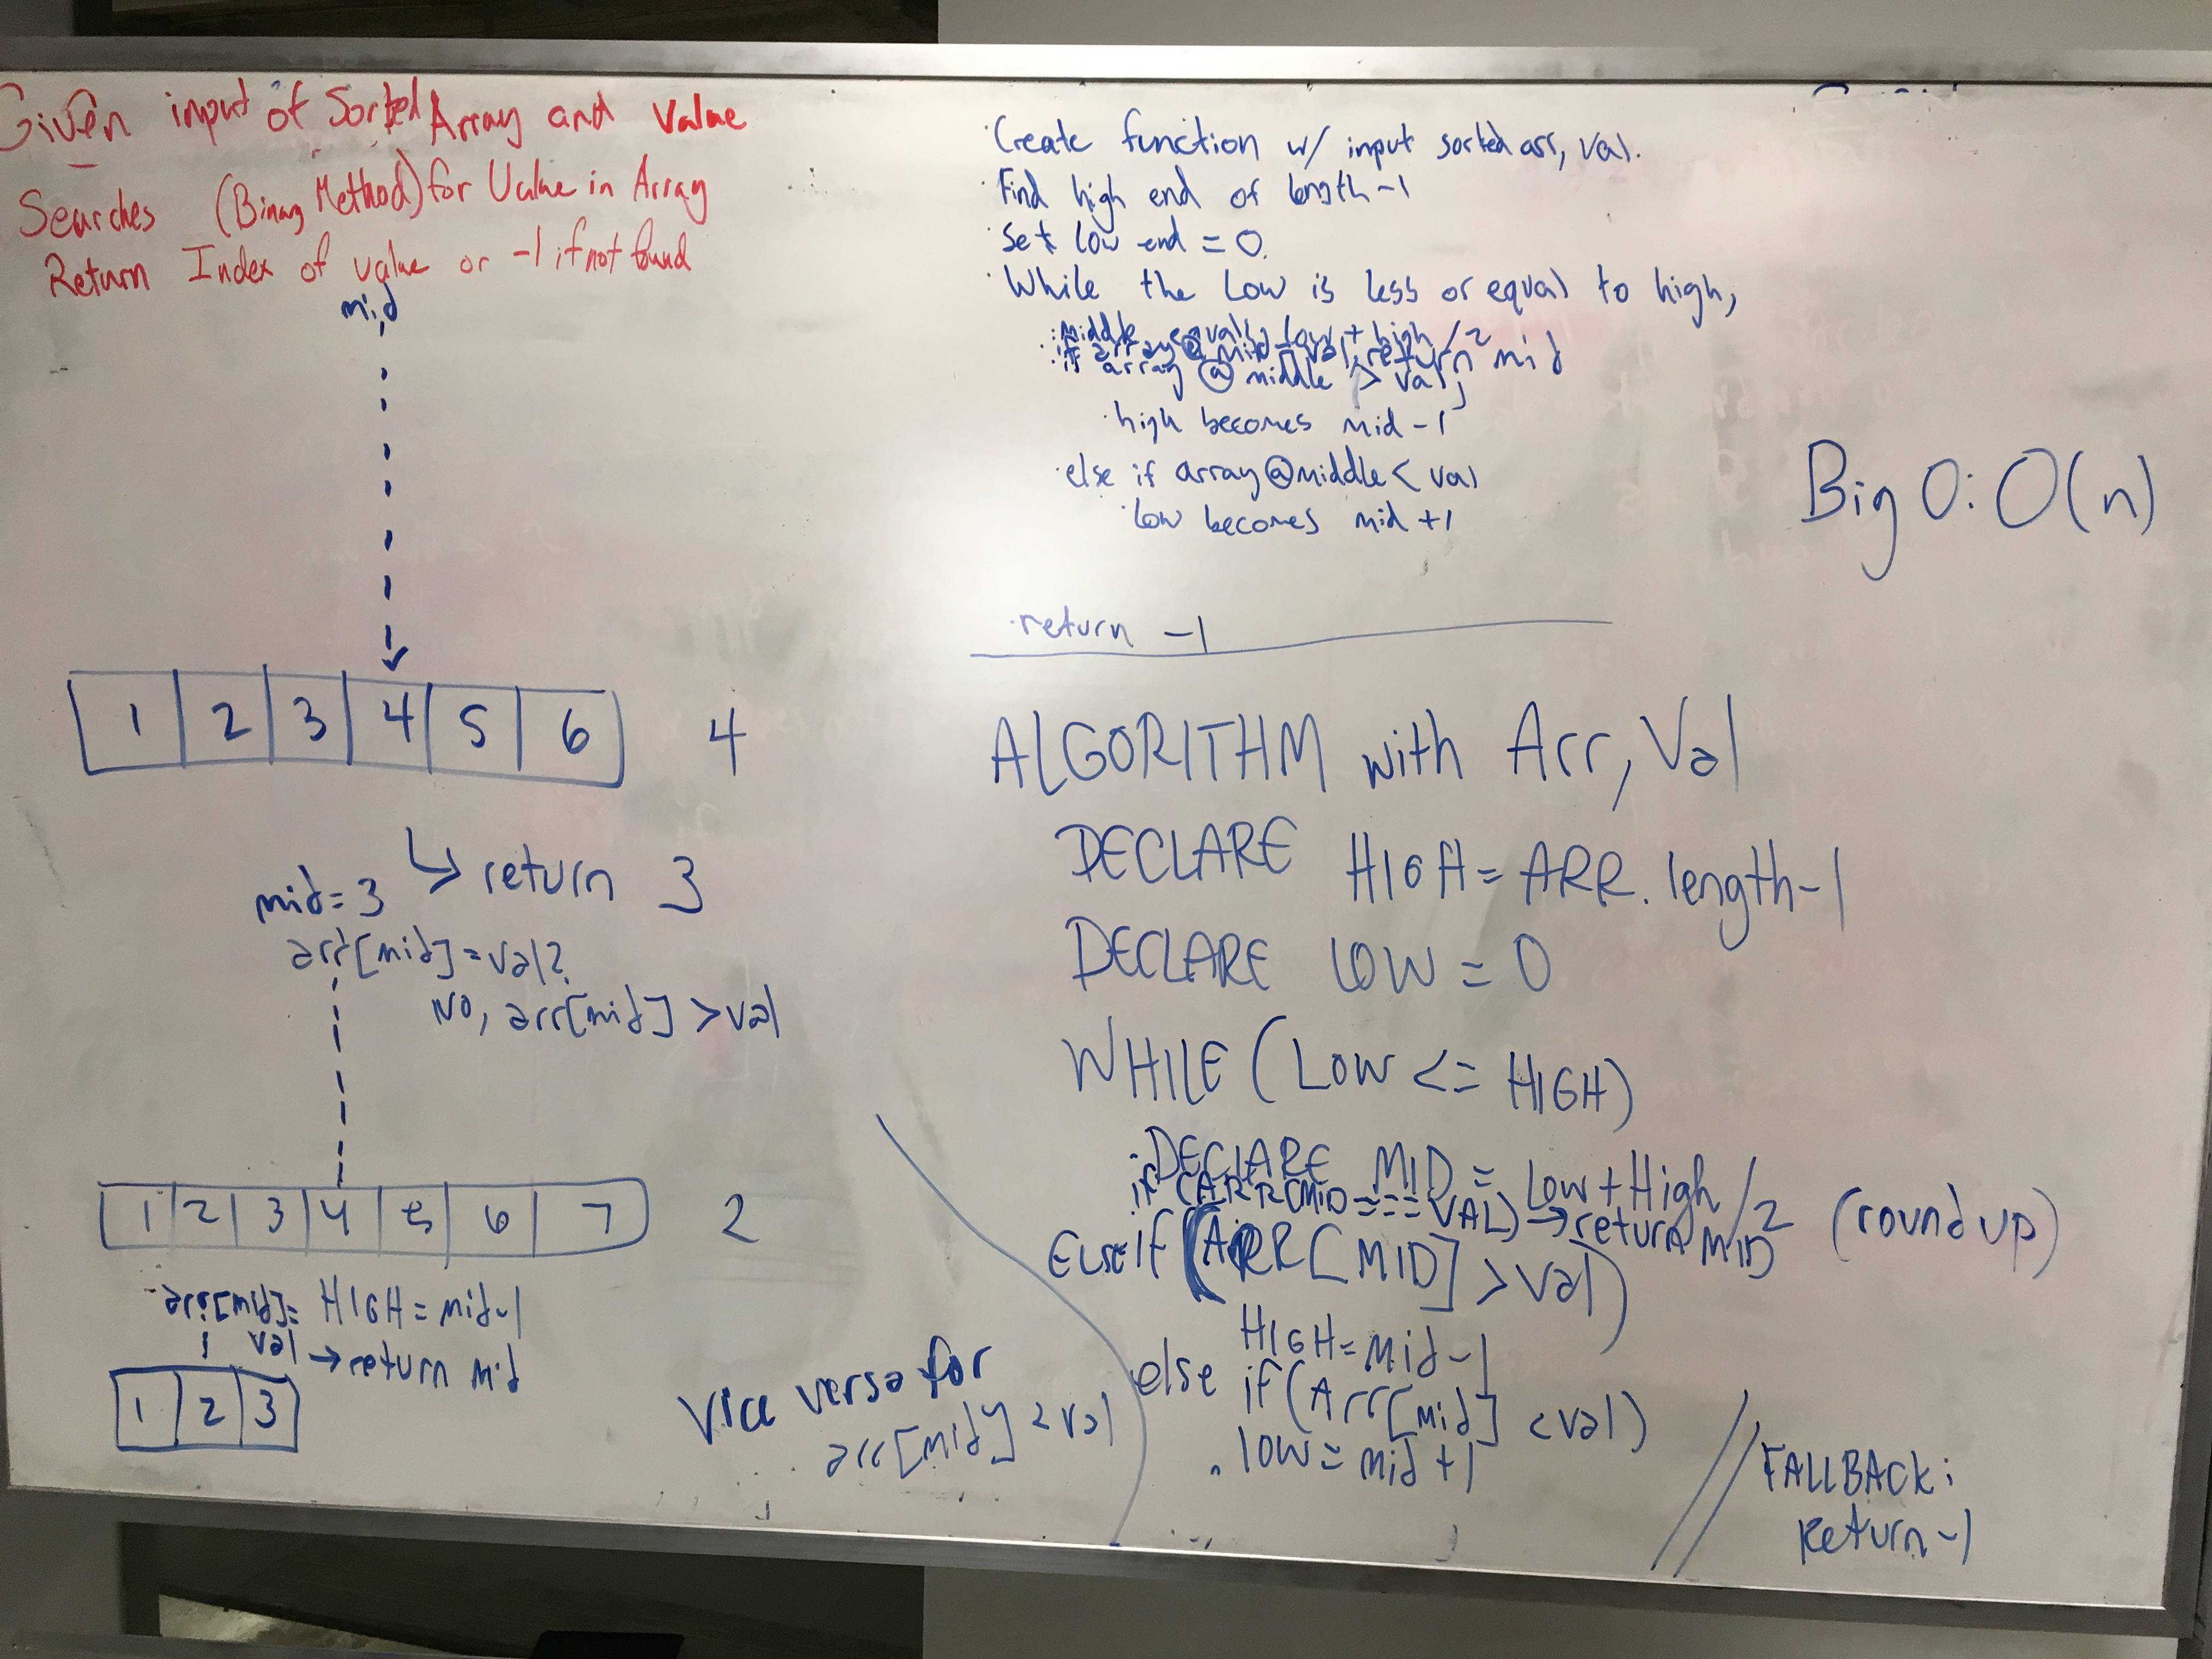 Given input of Sorted Array and Value
Searches (Binary Method) for Value in Array
Return Index of value or -1 if not found
mid
1 2 3 4 5 6 4
mid=3 ↳ return 3
arr[mid]=val?
No, arr[mid] > val
1 2 3 4 5 6 7 2
arr[mid]= HIGH = mid-1
val → return mid
1 2 3
Vice versa for
arr[mid] < val
· Create function w/ input sorted arr, val.
· Find high end of length-1
· Set low end = 0.
· While the Low is less or equal to high,
· middle equals low + high /2
· if array @ mid = val, return mid
· if array @ middle > val,
· high becomes mid -1
· else if array @ middle < val
· low becomes mid +1
· return -1
Big O: O(n)
ALGORITHM with Arr, Val
DECLARE HIGH = ARR. length-1
DECLARE LOW = 0
WHILE (LOW <= HIGH)
DECLARE MID = Low + High /2 (round up)
if (ARR(MID === VAL) → return MID
Else if (ARR[MID] > val)
HIGH = Mid -1
else if (Arr[mid] < val)
. low = mid +1
// FALLBACK:
Return -1